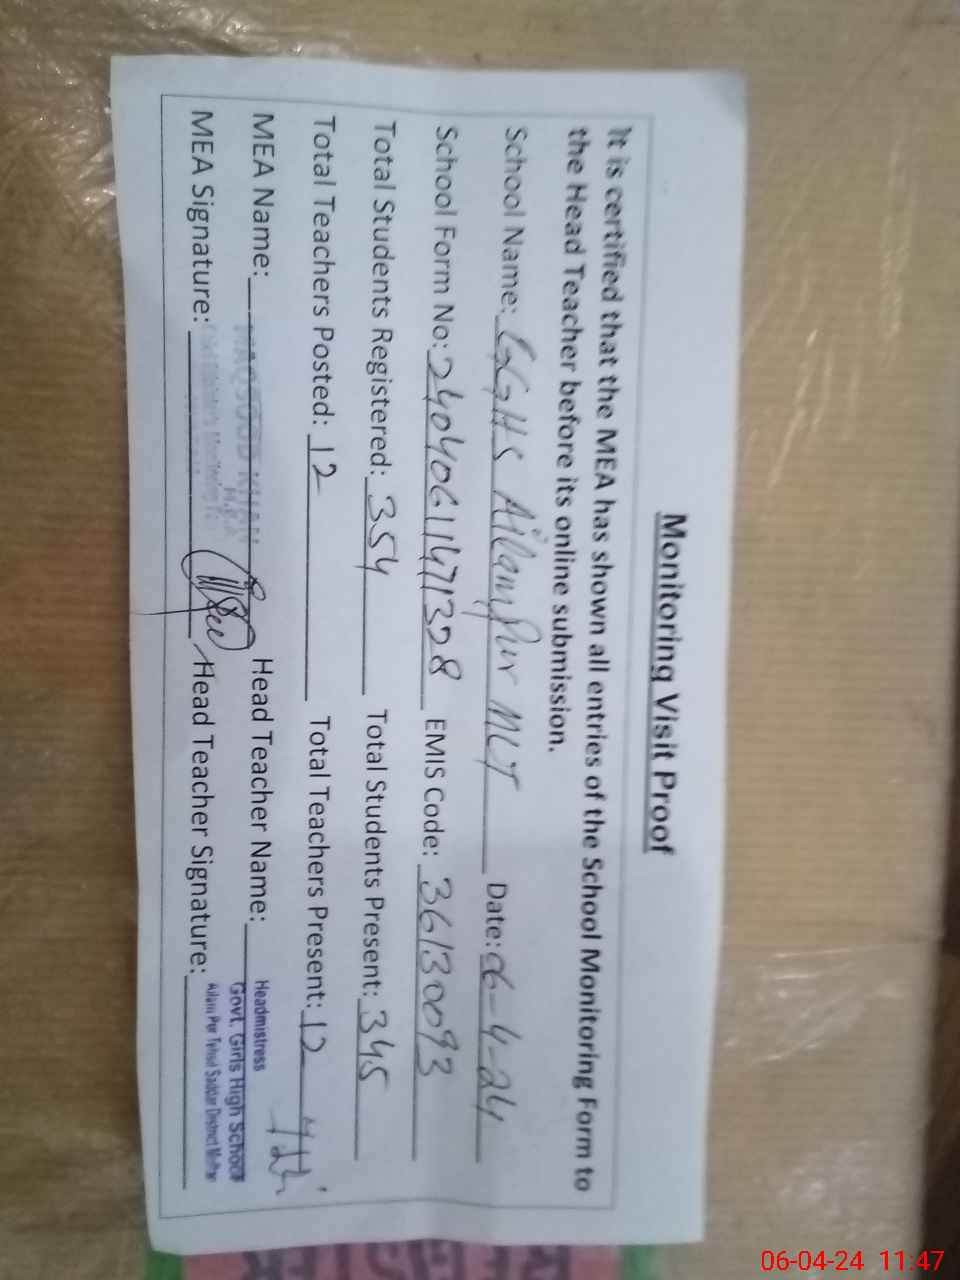 Monitoring Visit Proof
It is certified that the MEA has shown all entries of the School Monitoring Form to
the Head Teacher before its online submission.
School Name: GGHS Ailampur MLT Date: 06-4-24
School Form No: 24040611471328 EMIS Code: 36130093
Total Students Registered: 354 Total Students Present: 345
Total Teachers Posted: 12 Total Teachers Present: 12
MEA Name: MAQSOOD KHAN Head Teacher Name:
M.E.A
Headmistress
Govt. Girls High School
Ailam Pur Tehsil Saddar District
MEA Signature: Head Teacher Signature:
06-04-24 11:47